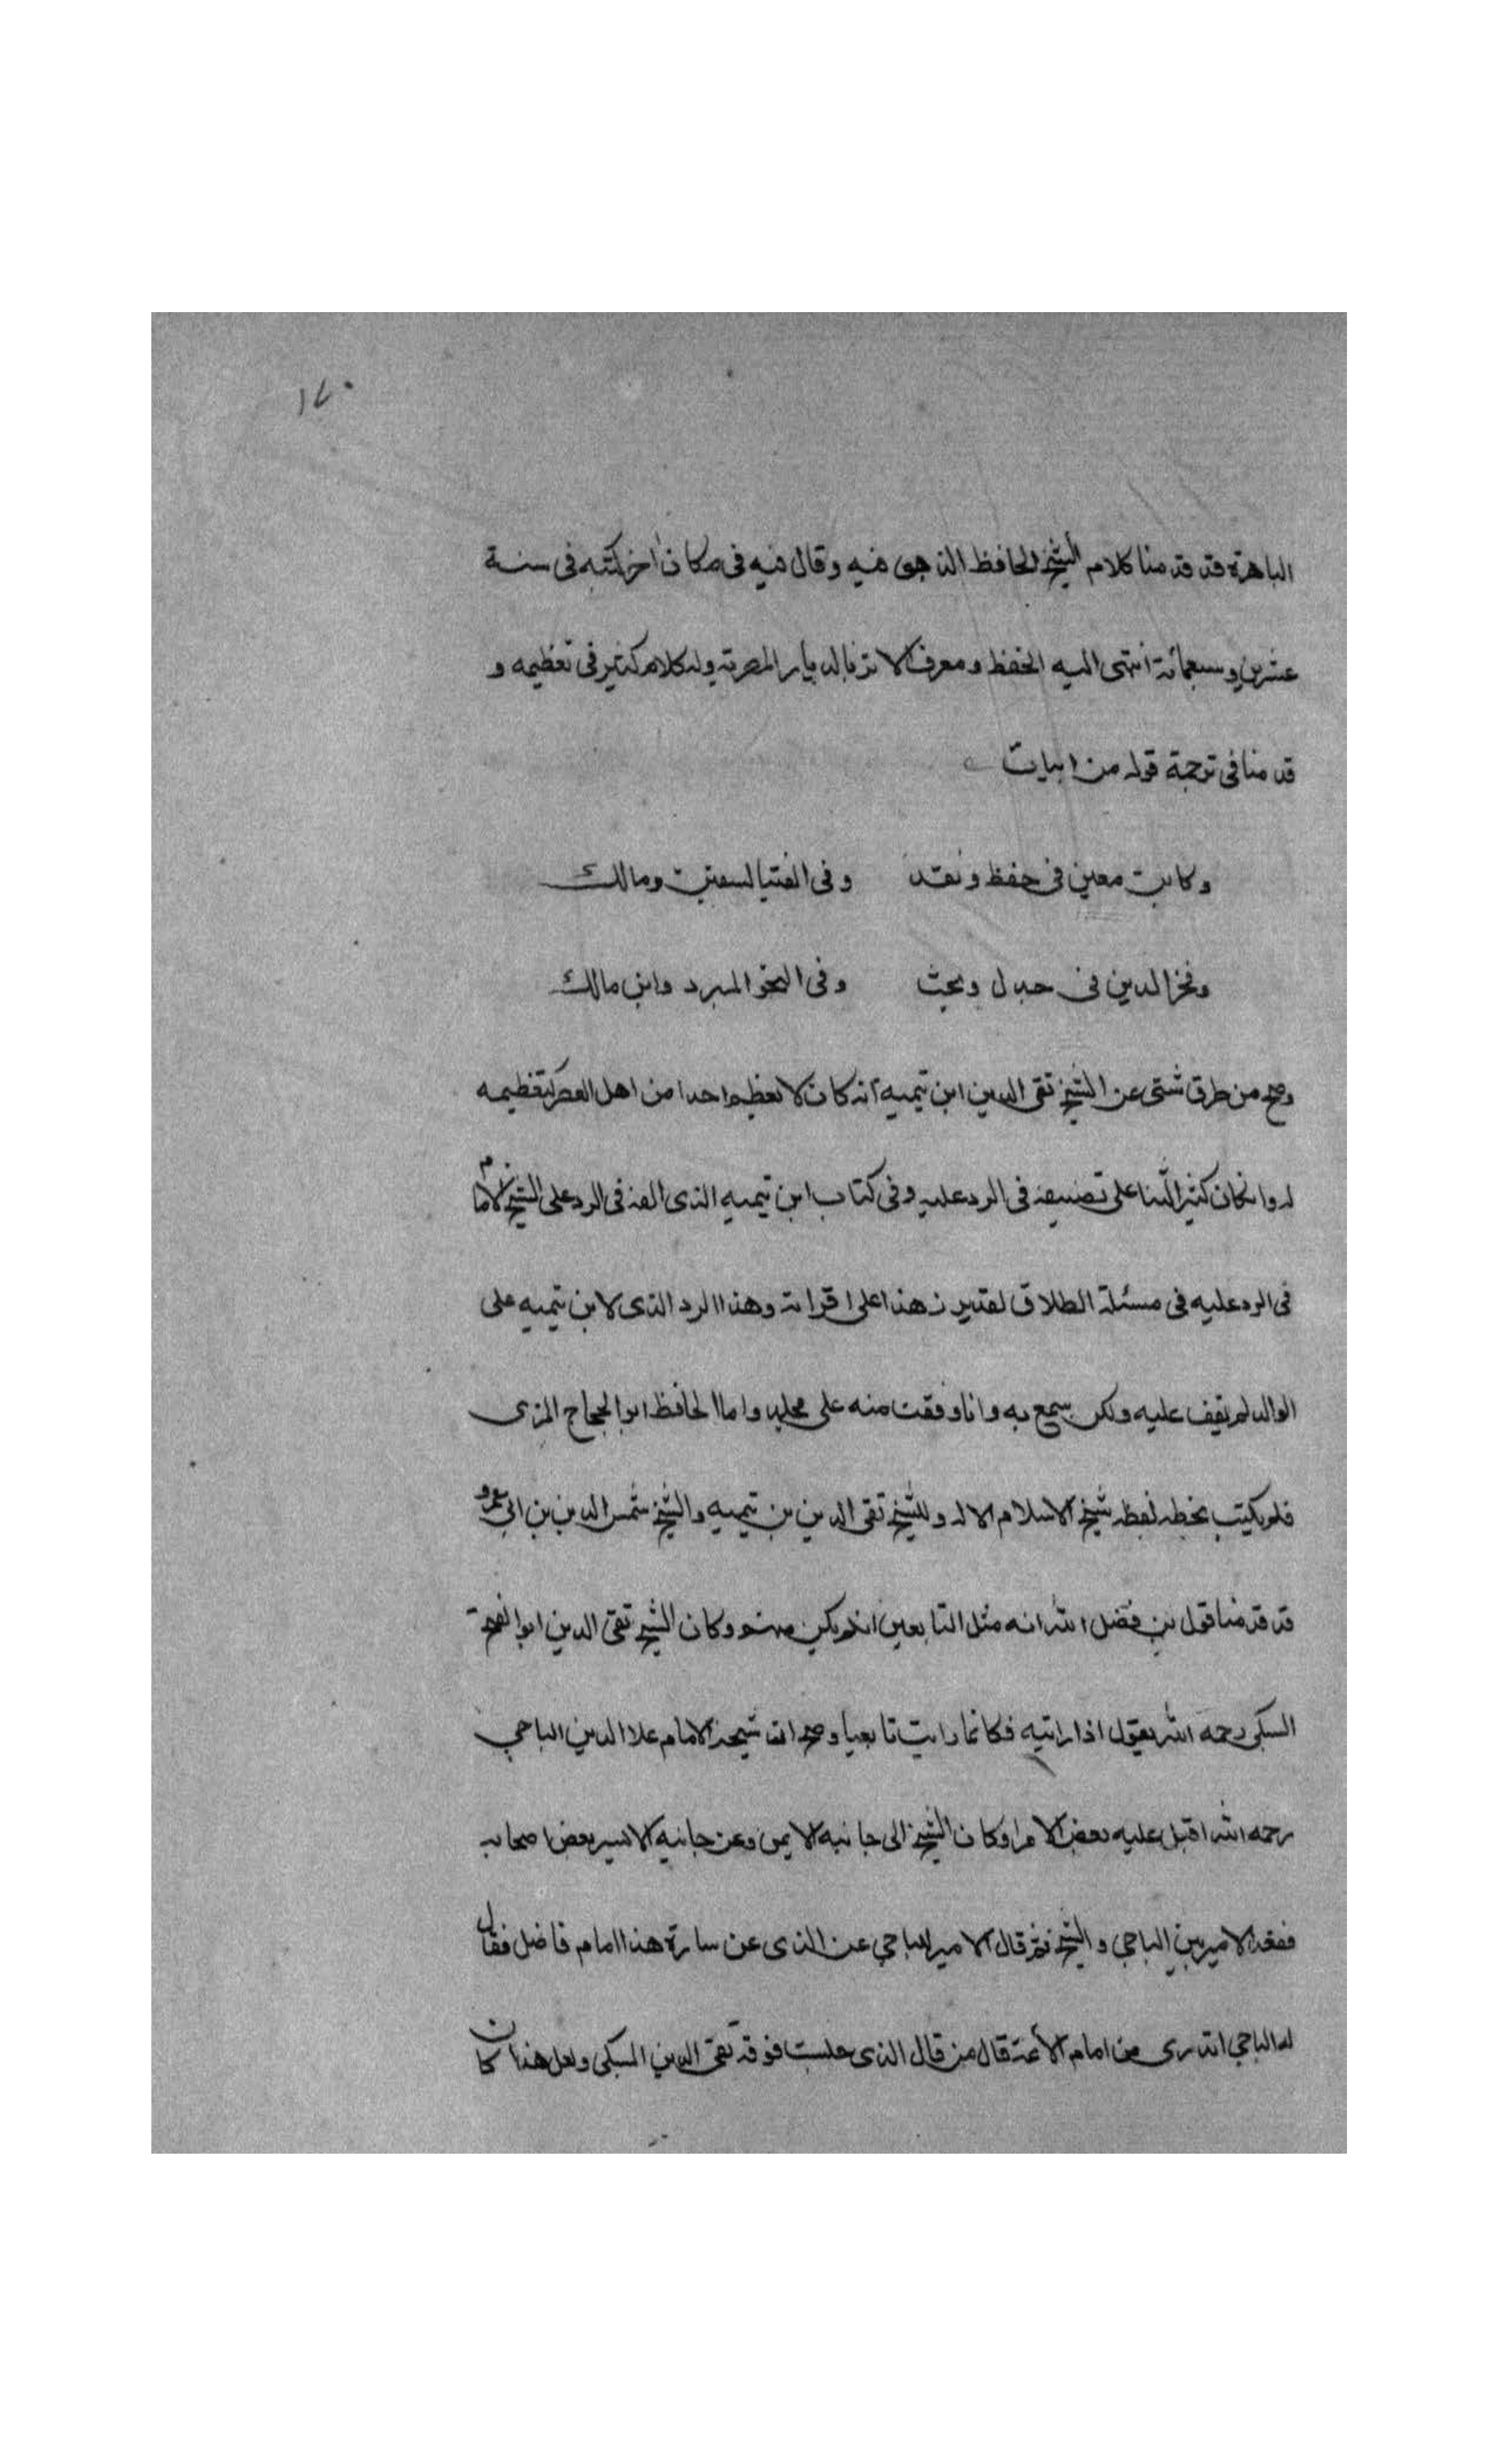 ١٧٠
الباهرة قد قدمنا كلام الشيخ الحافظ الذهبى فيه وقال فيه فى مكان اخر كتبه فى سنة
عشرين وسبعمائة انتهى اليه الحفظ ومعرفة الاثر بالديار المصرية وله كلام كثير فى تعظيمه و
قدمنا فى ترجمة قوله من ابيات
وكابن معين فى حفظ ونقد وفى الفتيا لسفين ومالك
وفخر الدين فى جدل وبحث وفى النحو المبرد وابن مالك
وصح من طرق شتى عن الشيخ تقى الدين ابن تيميه انه كان لا يعظم احدا من اهل العصر كتعظيمه
له وانه كان كثير الثنا على تصنيفه فى الرد عليه وفى كتاب ابن تيميه الذى الفه فى الرد على الشيخ الامام
فى الرد عليه فى مسئلة الطلاق لقد برز هذا على اقرانه وهذا الرد الذى لابن تيميه على
الوالد لم يقف عليه ولكن سمع به وانا وقفت منه على مجلد واما الحافظ ابو الحجاج المزى
فلم يكتب بخطه لفظه شيخ الاسلام الا له وللشيخ تقى الدين بن تيميه والشيخ شمس الدين بن ابى عمرو
قد قدمنا قول بن فضل الله انه مثل التابعين ان لم يكن منهم وكان الشيخ تقى الدين ابو الفتح
السبكى رحمه الله يقول اذا رايته فكانما رايت تابعيا وصح ان شيخه الامام علا الدين الباجي
رحمه الله اقبل عليه بعض الامرا وكان الشيخ الى جانبه الايمن وعن جانبه الايسر بعض اصحابه
فقعد الامير بين الباجي والشيخ ثم قال الامير للباجي عن الذى عن يساره هذا امام فاضل فقال
له الباجي اتدرى من هذا امام الائمة قال من قال الذى جلست فوقه تقى الدين السبكى ولعل هذا كان